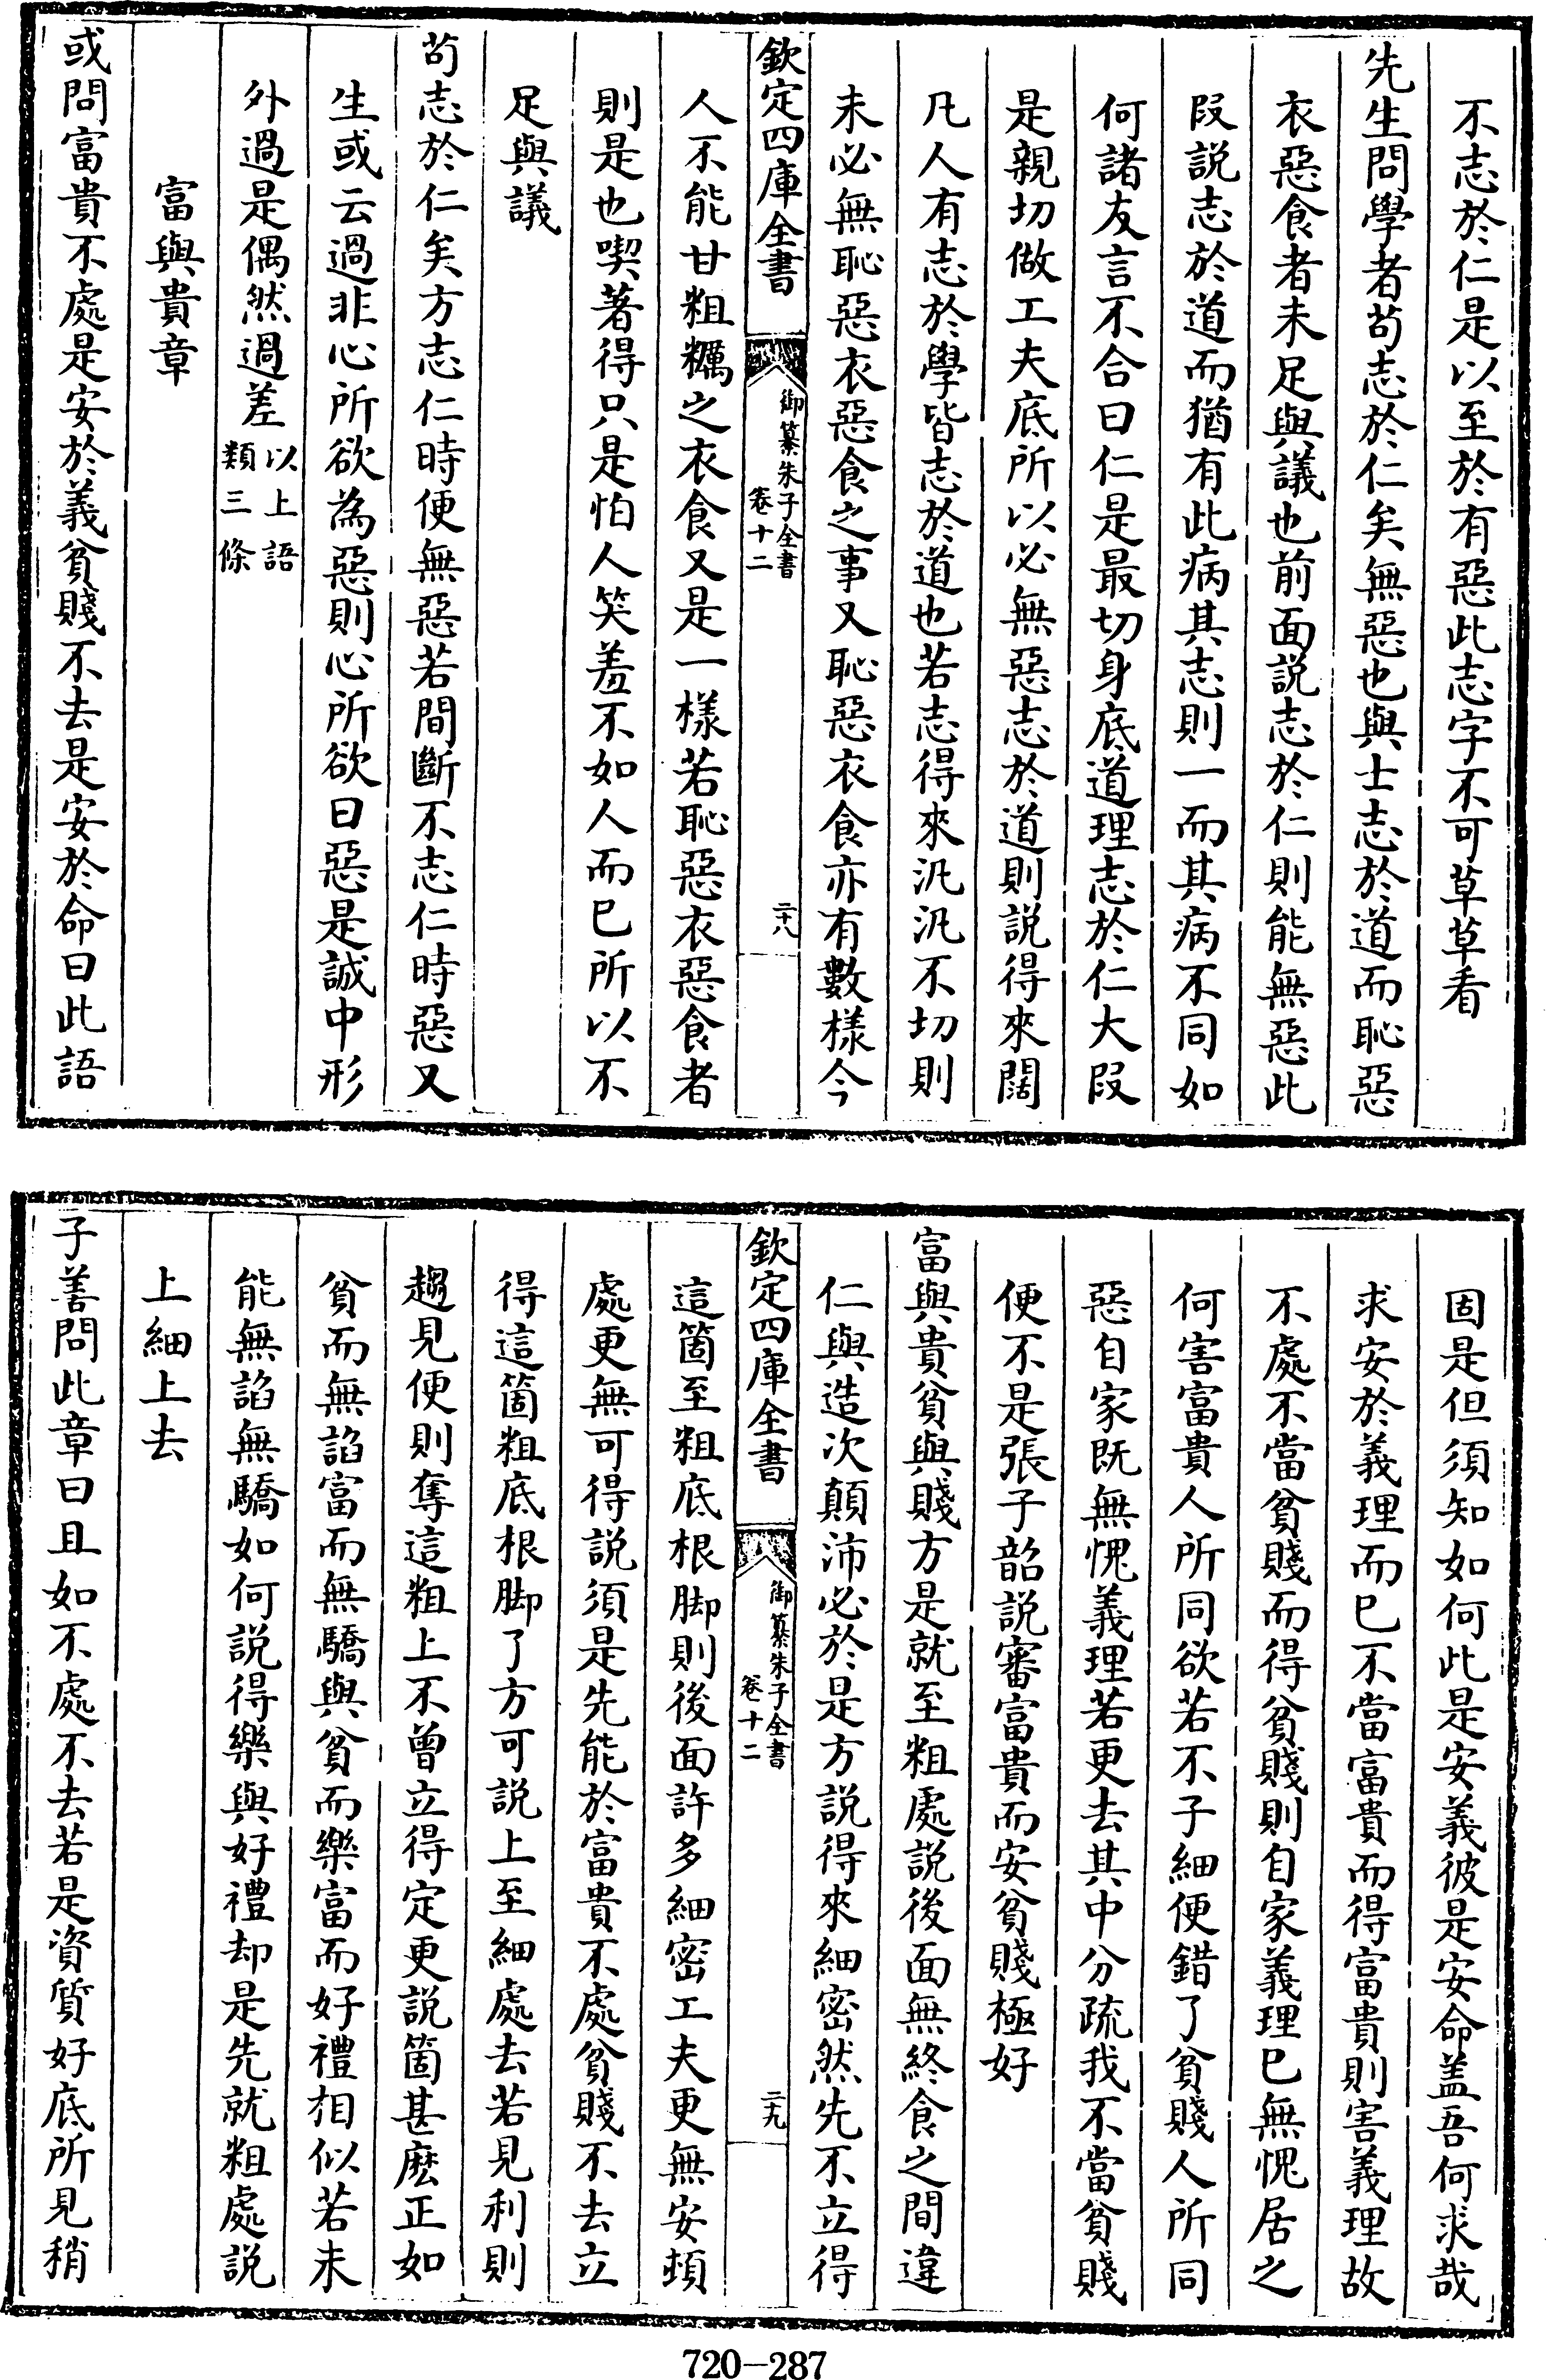 不志於仁是以至於有惡此志字不可草草看
先生問學者苟志於仁矣無惡也與士志於道而恥惡
衣惡食者未足與議也前面説志於仁則能無惡此
段説志於道而猶有此病其志則一而其病不同如
何諸友言不合曰仁是最切身底道理志於仁大段
是親切做工夫底所以必無惡志於道則説得來闊
凡人有志於學皆志於道也若志得來汎汎不切則
未必無恥惡衣惡食之事又恥惡衣食亦有數樣今
欽定四庫全書
御纂朱子全書
卷十二
二十八
人不能甘粗糲之衣食又是一樣若恥惡衣惡食者
則是也喫著得只是怕人笑羞不如人而已所以不
足與議
苟志於仁矣方志仁時便無惡若間斷不志仁時惡又
生或云過非心所欲為惡則心所欲曰惡是誠中形
外過是偶然過差以上語
類三條
富與貴章
或問富貴不處是安於義貧賤不去是安於命曰此語
固是但須知如何此是安義彼是安命盖吾何求哉
求安於義理而已不當富貴而得富貴則害義理故
不處不當貧賤而得貧賤則自家義理已無愧居之
何害富貴人所同欲若不子細便錯了貧賤人所同
惡自家既無愧義理若更去其中分疏我不當貧賤
便不是張子韶説審富貴而安貧賤極好
富與貴貧與賤方是就至粗處説後面無終食之間違
仁與造次顛沛必於是方説得來細密然先不立得
欽定四庫全書
御纂朱子全書
卷十二
二十九
這箇至粗底根脚則後面許多細密工夫更無安頓
處更無可得説須是先能於富貴不處貧賤不去立
得這箇粗底根脚了方可説上至細處去若見利則
趨見便則奪這粗上不曾立得定更説箇甚麽正如
貧而無諂富而無驕與貧而樂富而好禮相似若未
能無諂無驕如何説得樂與好禮却是先就粗處説
上細上去
子善問此章曰且如不處不去若是資質好底所見稍
720-287